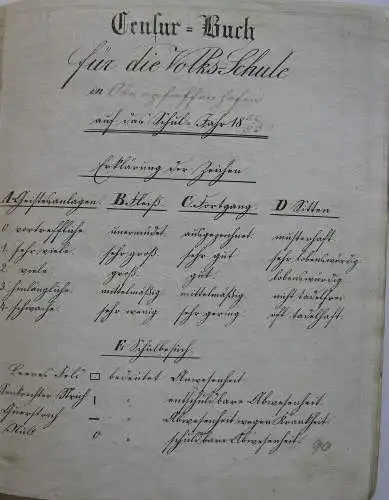 Censur = Buch
für die Volks-Schule
in Oberpfaffenhofen
auf das Schul-Jahr 18
Erklärung der Zeichen
A. Geistesanlagen. B. Fleiß C. Fortgang D Sitten
0 vortreffliche unermüdet ausgezeichnet musterhaft
1 sehr viele sehr groß sehr gut sehr lobenswürdig
2 viele groß gut lobenswürdig
3 hinlängliche mittelmäßig mittelmäßig nicht tadelfrei
4 schwache sehr wenig sehr gering oft tadelhaft.
E Schulbesuch.
Leeres Feld □ bedeutet Anwesenheit
Senkrechter Strich | " entschuldbare Abwesenheit.
Querstrich — " Abwesenheit wegen Krankheit
Null 0 " schuldbare Abwesenheit.
90